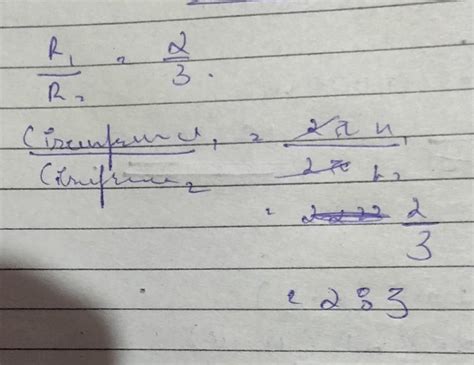 R₁/R₂ = 2/3.
Circumference₁/Circumference₂ = 2π r₁/2π r₂
= 2/3
= 2 : 3